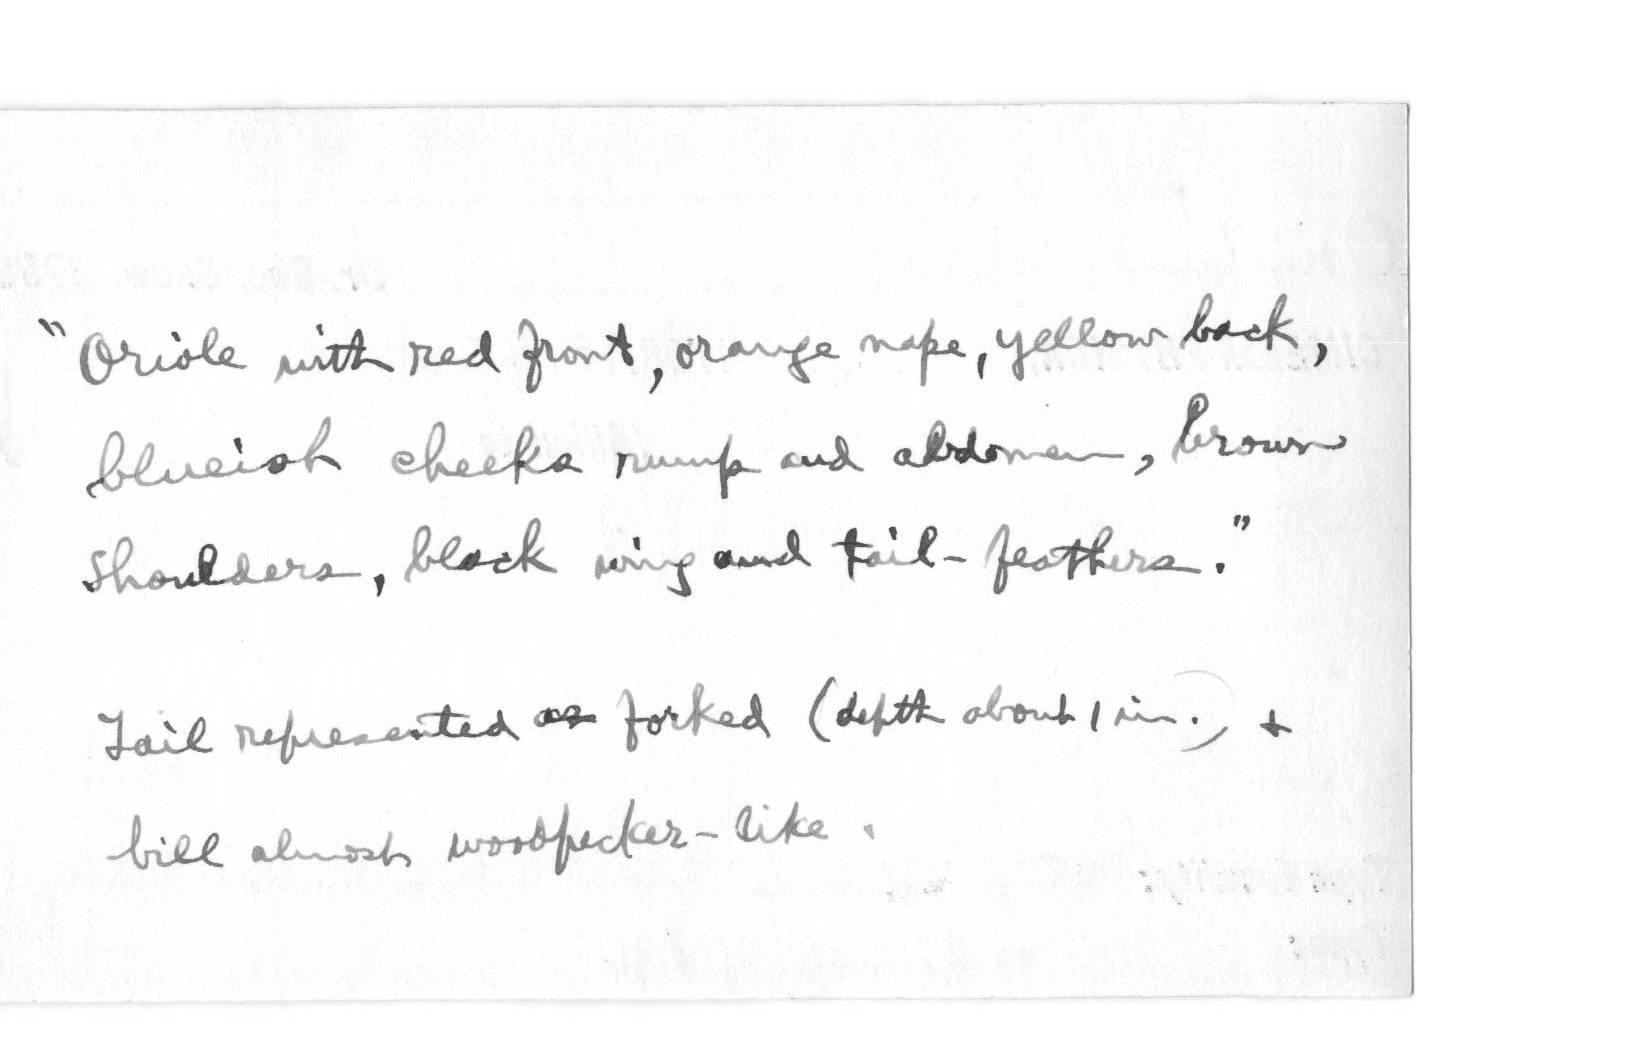 "Oriole with red front, orange nape, yellow back,
blueish cheeks rump and abdomen, brown
shoulders, black wing and tail-feathers."
Tail represented as forked (depth about 1 in.) +
bill almost woodpecker-like.